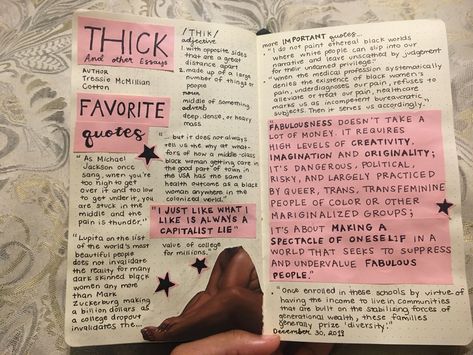 THICK
And other Essays
AUTHOR
Tressie McMillian
Cotton
FAVORITE
quotes
/THiK/
adjective
1. with opposite sides
that are a great
distance apart
2. made up of a large
number of things or
people
noun
middle of something.
adverb
deep, dense, or heavy
mass.
"As Michael
Jackson once
sang, when you're
too high to get
over it and too low
to get under it, you
are stuck in the
middle and the
pain is thunder."
"Lupita on the list
of the world's most
beautiful people
does not invalidate
the reality for many
dark skinned black
women any more
than Mark
Zuckerburg making
a billion dollars as
a college dropout
invalidates the...
"... but it does not always
tell us the why at what-
fors of how a middle-class
black woman getting care in
the good part of town in
the USA has the same
health outcome as a black
woman anywhere in the
colonized world."
"I JUST LIKE WHAT I
LIKE IS ALWAYS A
CAPITALIST LIE"
value of college
for millions."
more IMPORTANT quotes...
"I do not paint ethereal black worlds
where white people can slip into our
narrative and leave unscathed by judgment
for their unearned privilege."
"when the medical profession systematically
denies the existence of black women's
pain, underdiagnoses our pain, refuses to
alleviate or treat our pain, healthcare
marks us as incompetent bureaucratic
subjects. Then it serves us accordingly."
"FABULOUSNESS DOESN'T TAKE A
LOT OF MONEY. IT REQUIRES
HIGH LEVELS OF CREATIVITY,
IMAGINATION AND ORIGINALITY;
IT'S DANGEROUS, POLITICAL,
RISKY, AND LARGELY PRACTICED
BY QUEER, TRANS, TRANSFEMININE
PEOPLE OF COLOR OR OTHER
MARIGINALIZED GROUPS;
IT'S ABOUT MAKING A
SPECTACLE OF ONESELF IN A
WORLD THAT SEEKS TO SUPPRESS
AND UNDERVALUE FABULOUS
PEOPLE."
"Once enrolled in these schools by virtue of
having the income to live in communities
that are built on the stabilizing forces of
generational wealth, these families
generally prize 'diversity.'"
December 30, 2019